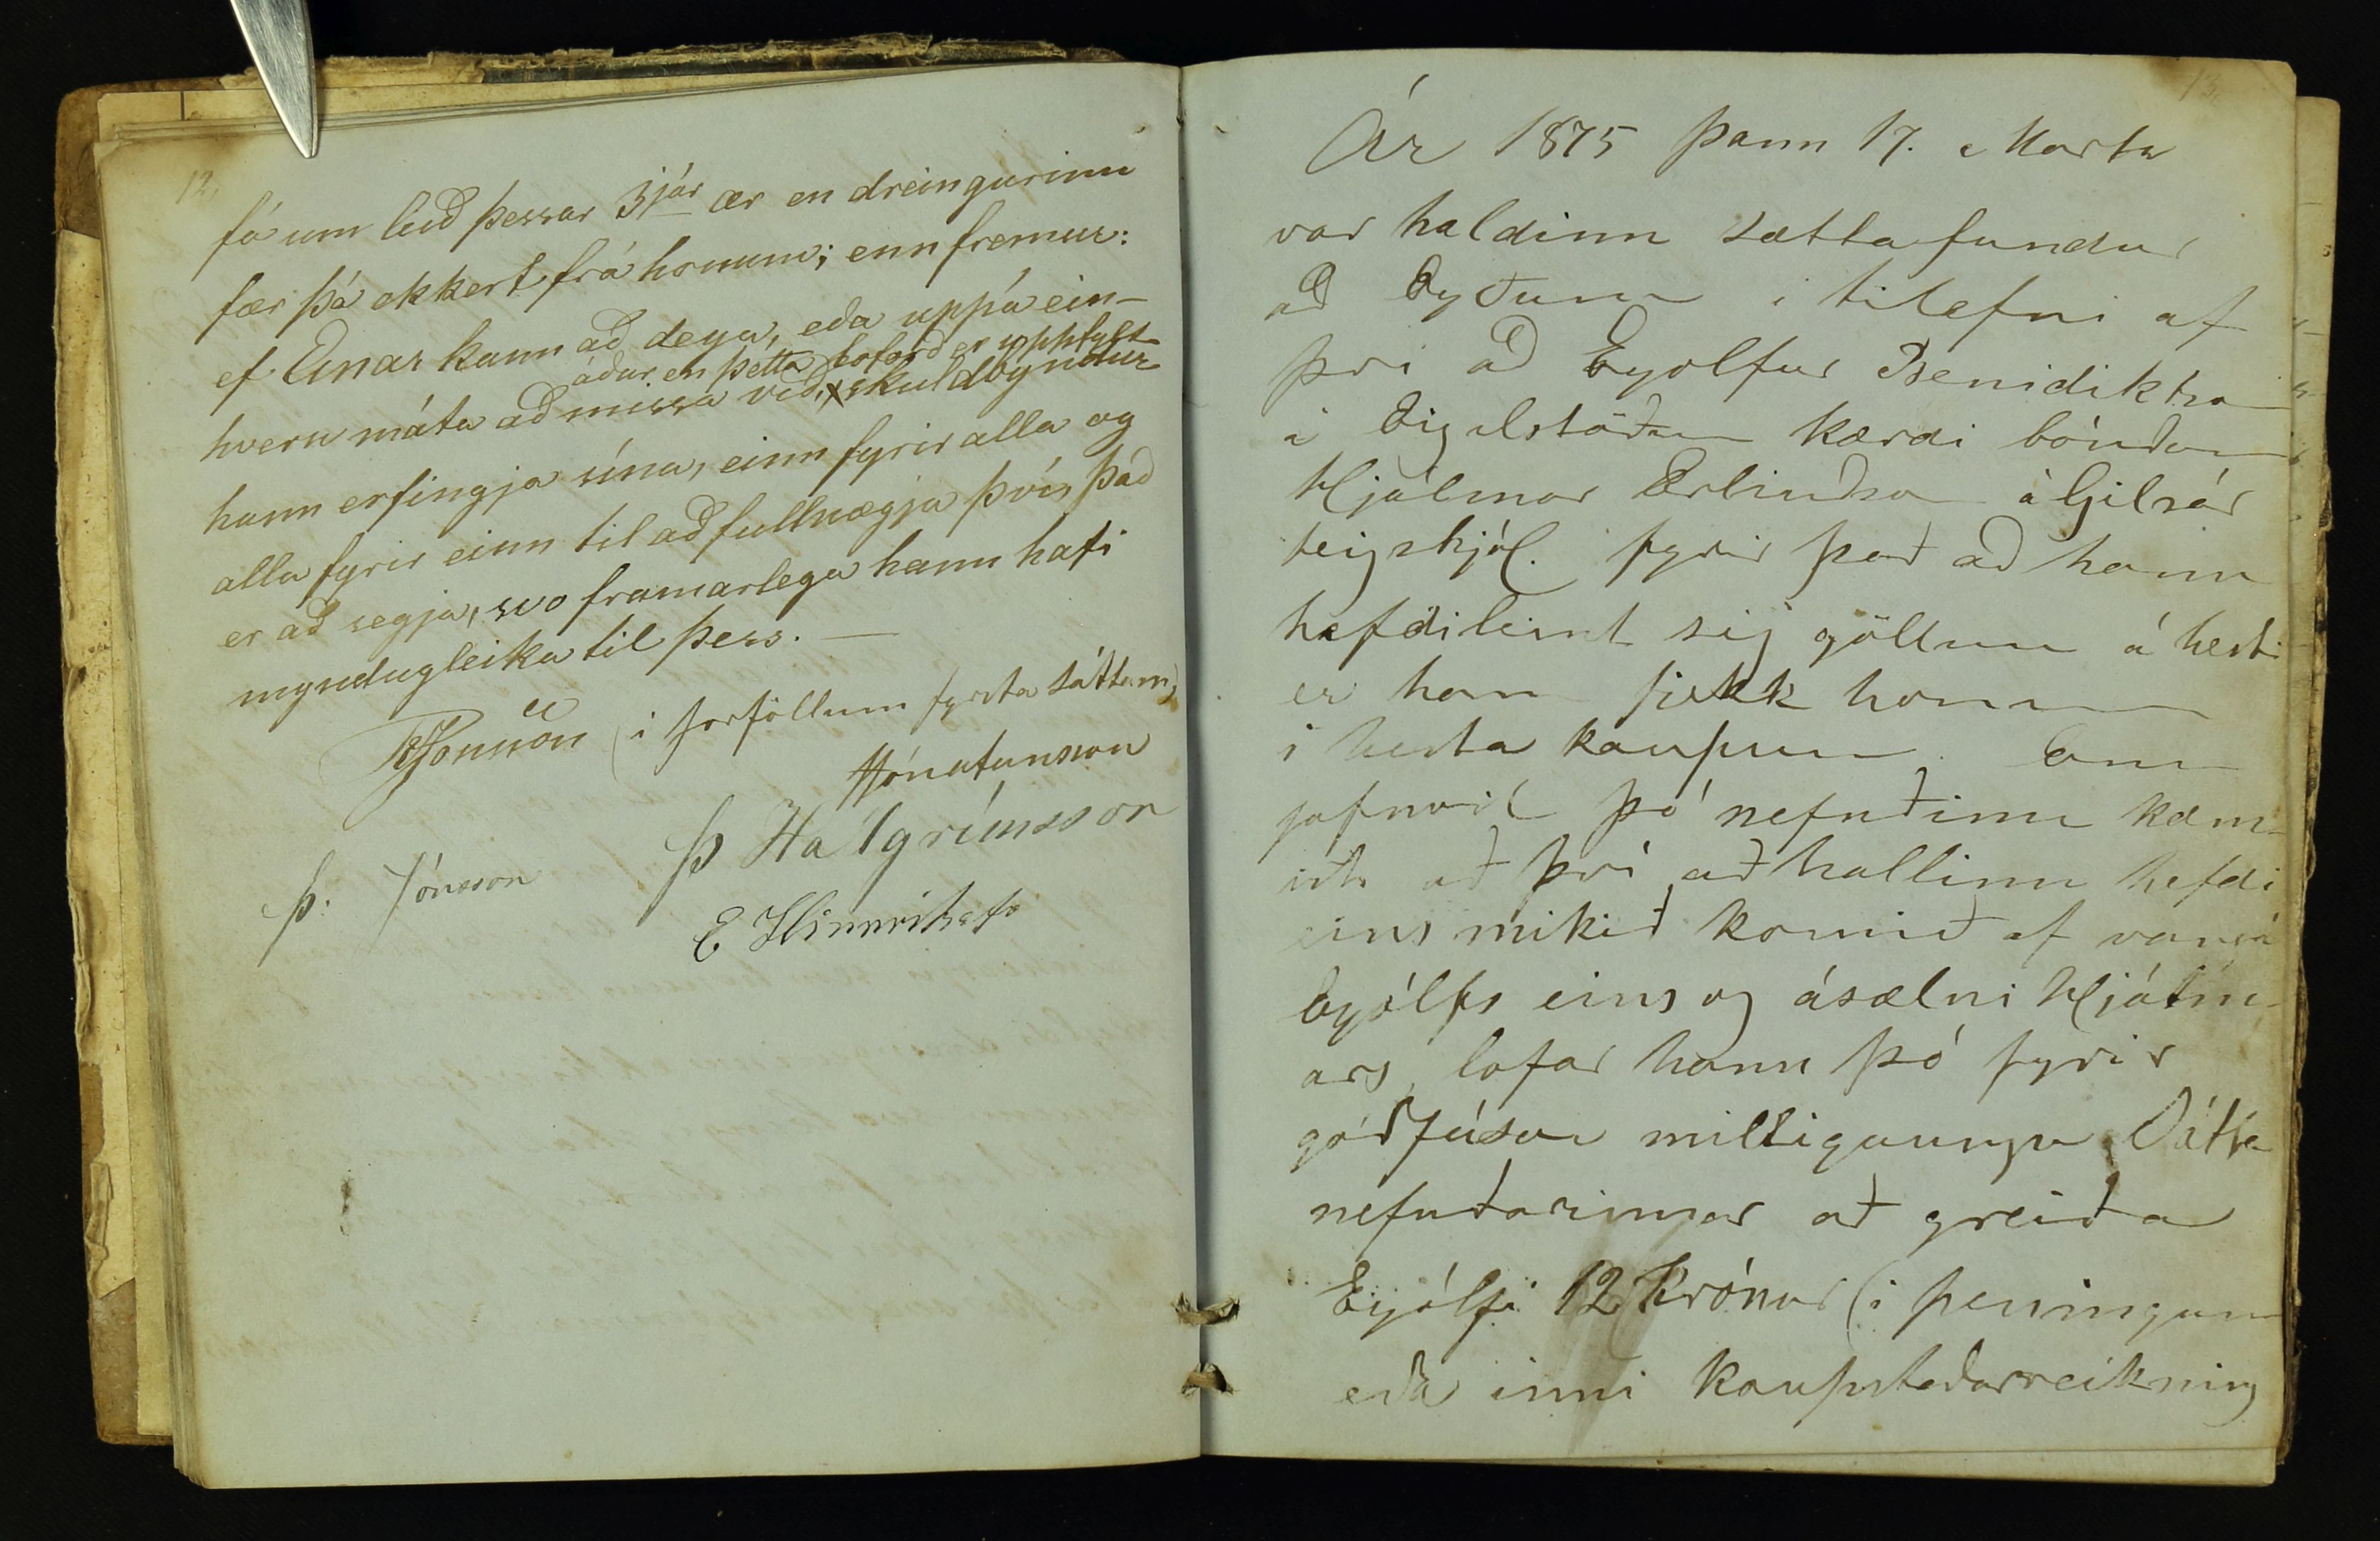 12.
fá um leið þessar 3jár ær en dreingurinn
fær þá ekkert frá honum; enn fremur:
ef Einar kann að deya, eða uppá ein-
áður en þetta loforð er uppfylt
hvern máta að missa við, x skuldbyndur
hann erfingja sína, einn fyrir alla og
alla fyrir einn til að fullnægja því, það
er að segja, svo framarlega hann hafi
myndugleika til þess. —
RJónsson (i forföllum fyrsta sáttam)
HJónatansson
Þ. Jónsson
Þ Hallgrímsson
E Hinriksson
13.
Ár 1875 þann 17. Marts
var haldinn sættafundur
að Eyðum i tilefni af
þvi að Eyolfur Benidiktsson
i Gigulstöðum kærdi bóndan
Hjálmar Erlindson á Gilsár
teigshjál. fyrir það að hann
hefdi leint sig göllum á hesti
er hann fiekk honum
i hesta kaupum. Enn
jafnvel þó nefndinn kæm
ist að þvi að hallinn hefdi
eins mikið komið af vansjá
Eyólfs eins og ásælni Hjálm-
ars, lofar hann þó fyrir
góðfúsan milligaungu Sátta
nefndarinnar að greiða
Eyólfi 12 Krónur (i peningum
eða inni kaupstaðarreikning